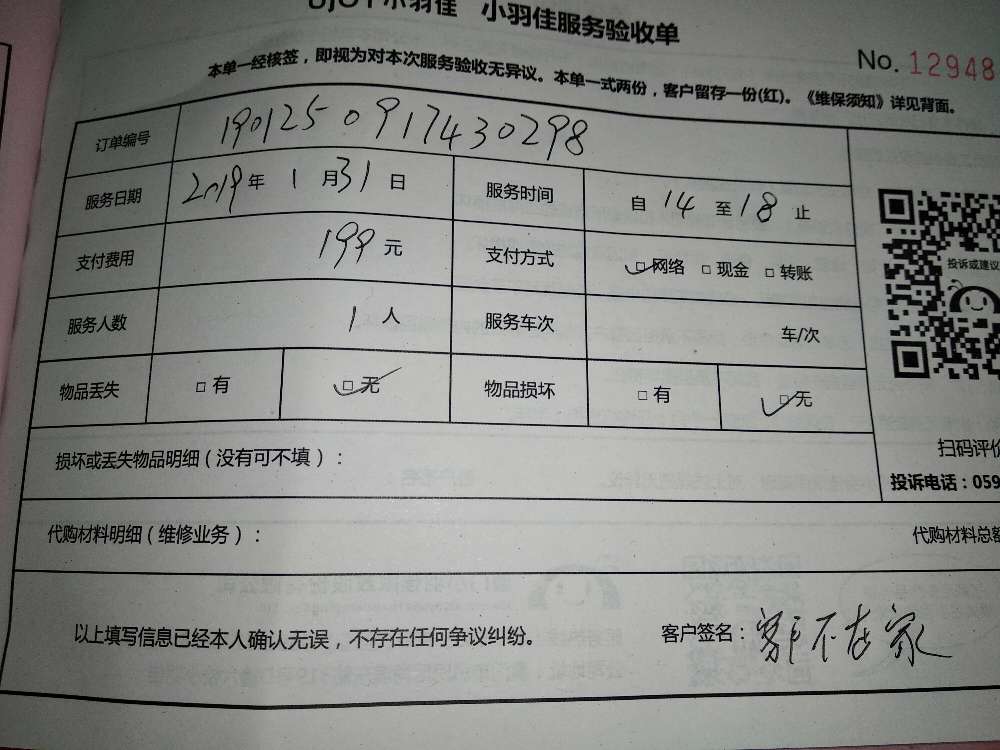 UJOY小羽佳 小羽佳服务验收单
No. 12948
本单一经核签，即视为对本次服务验收无异议。本单一式两份，客户留存一份(红)。《维保须知》详见背面。
订单编号 190125091743０298
服务日期 2019年 1 月31 日 服务时间 自 14 至 18 止
支付费用 199 元 支付方式 □网络 □现金 □转账
投诉或建议
服务人数 1 人 服务车次 车/次
物品丢失 □有 □无 物品损坏 □有 □无
扫码评价
损坏或丢失物品明细（没有可不填）：
投诉电话：059
代购材料明细（维修业务）： 代购材料总额
以上填写信息已经本人确认无误，不存在任何争议纠纷。 客户签名：客户不在家